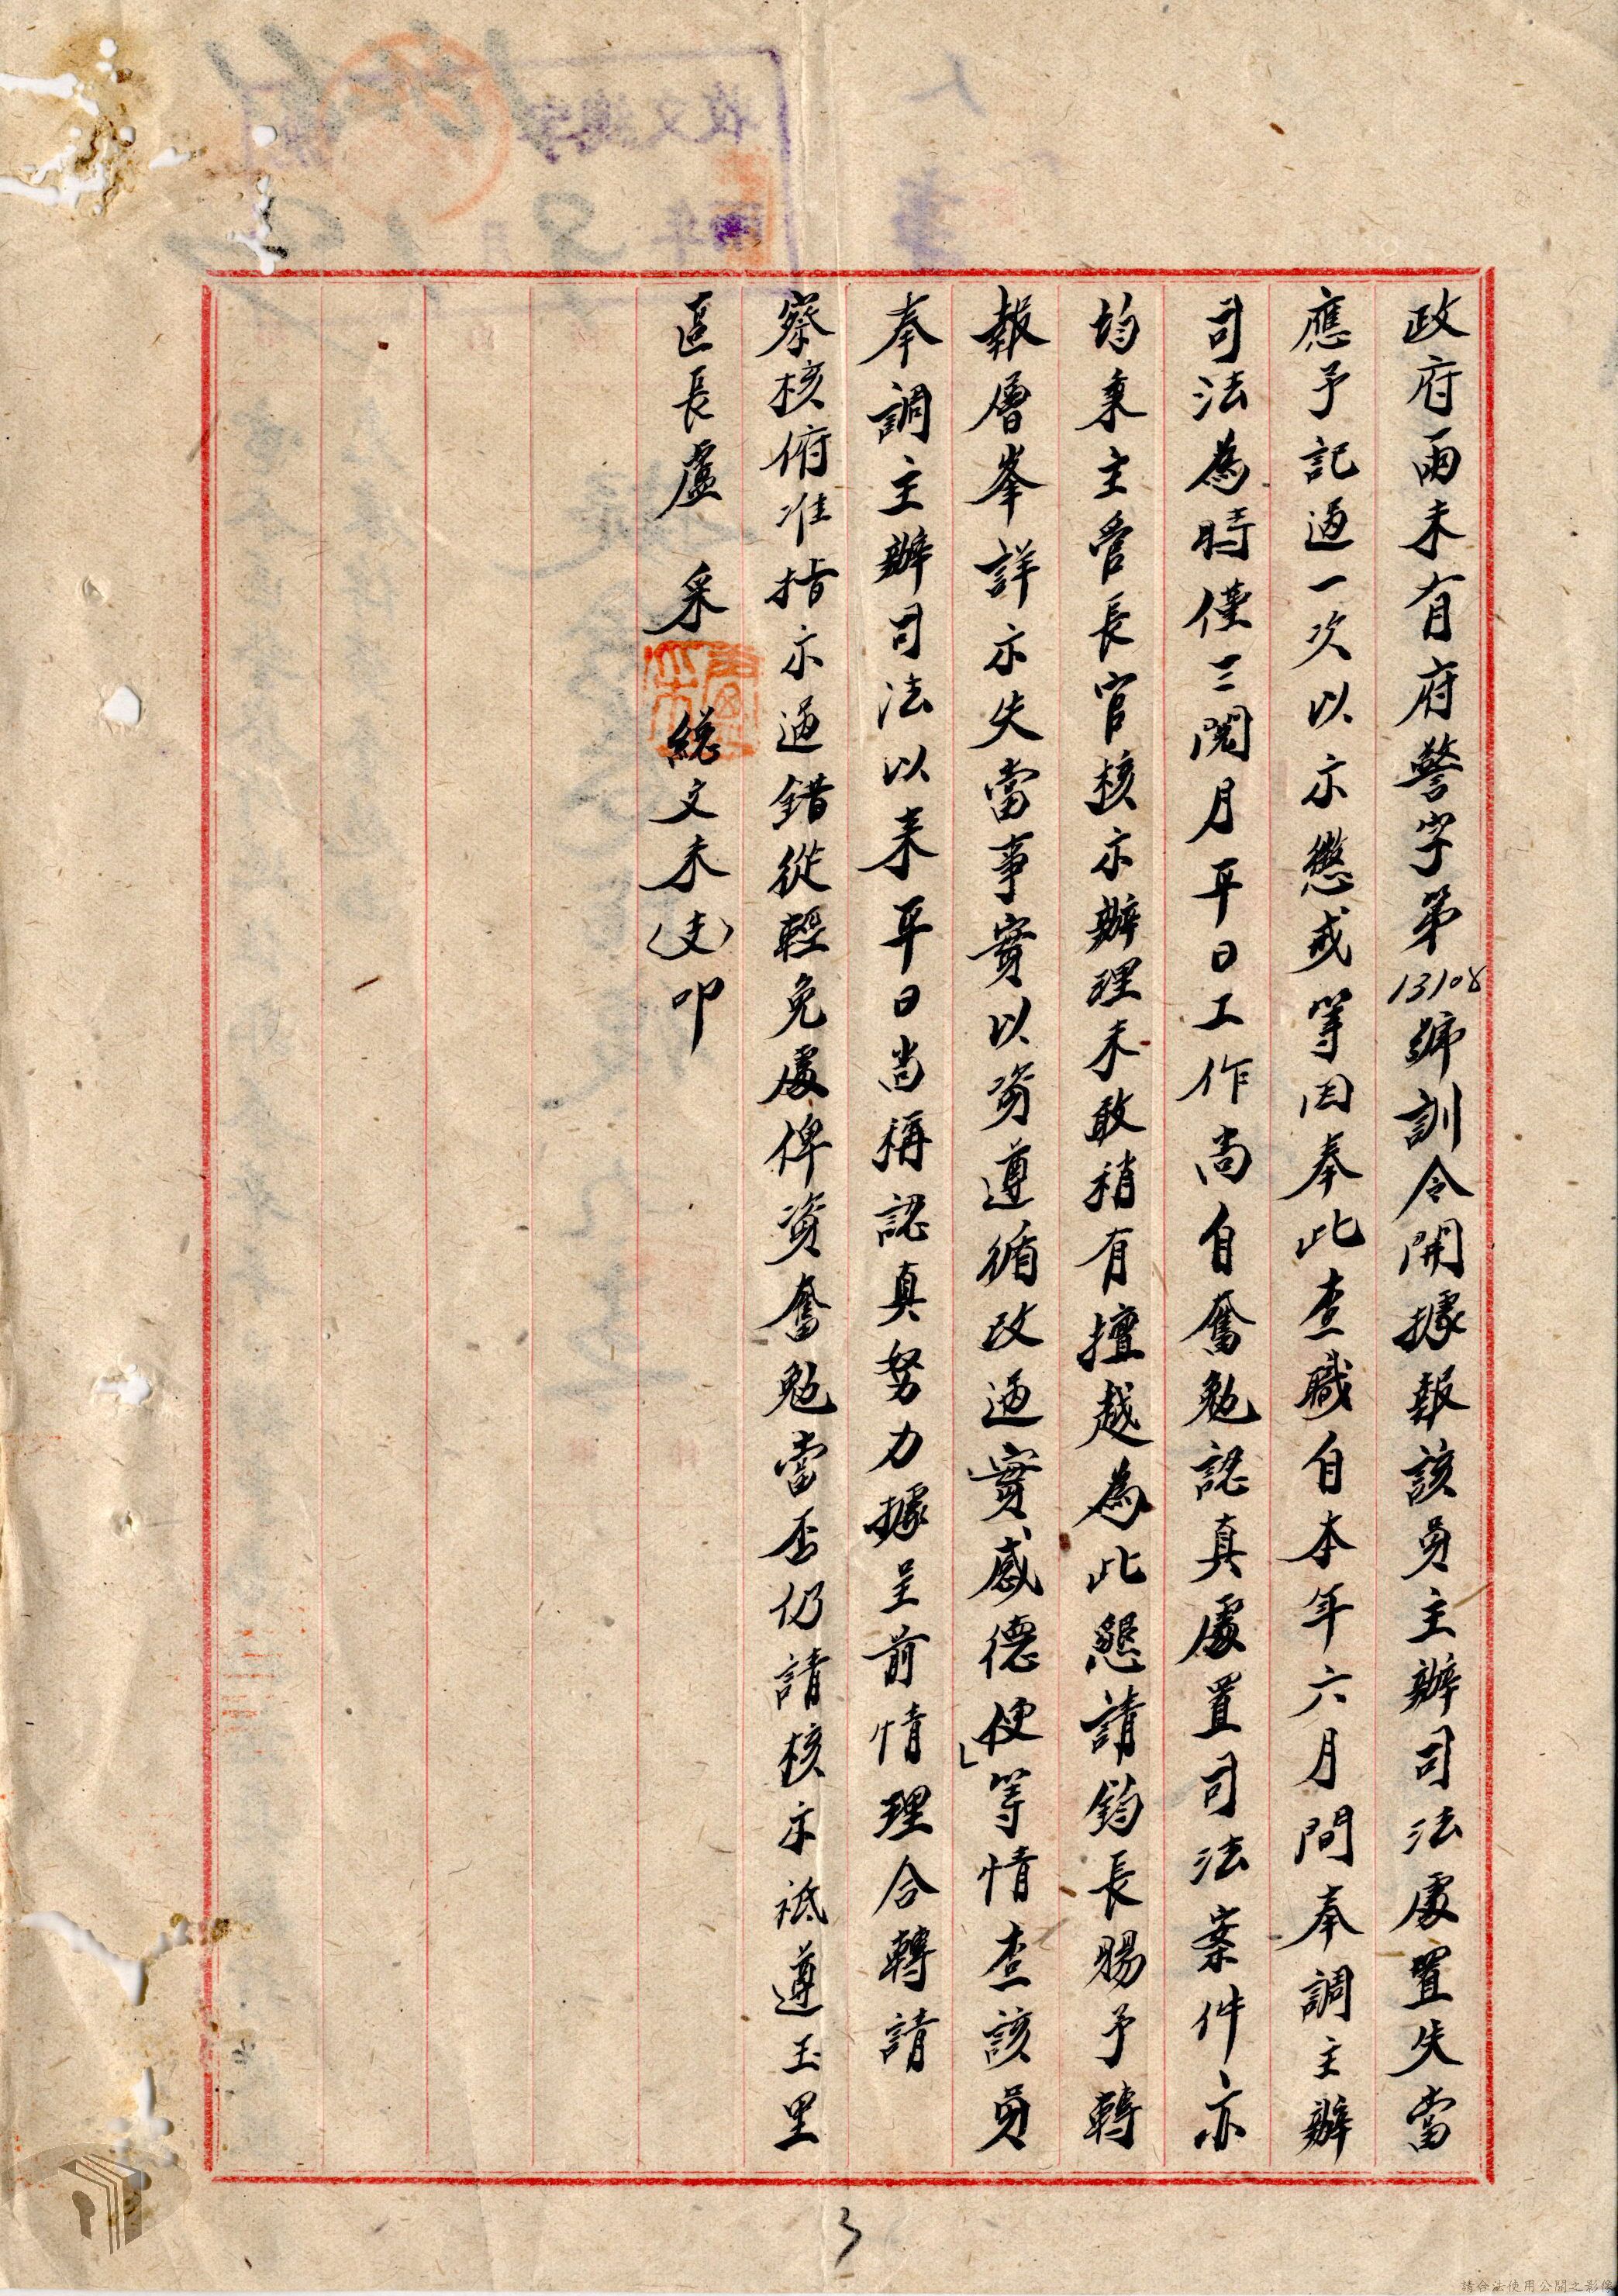 政府雨未有府警字第13108號訓令開據報該員主辦司法處置失當
應予記過一次以示懲戒等因奉此查職自本年六月間奉調主辦
司法為時僅三閱月平日工作尚自奮勉認真處置司法案件亦
均秉主管長官核示辦理未敢稍有擅越為此懇請鈞長賜予轉
報層峯詳示失當事實以資遵循改過實感德便」等情查該員
奉調主辦司法以來平日尚稱認真努力據呈前情理合轉請
察核俯准指示過錯從輕免處俾資奮勉當否仍請核示祗遵玉里
區長盧 采 總文未(支)叩
3
請合法使用公開之影像